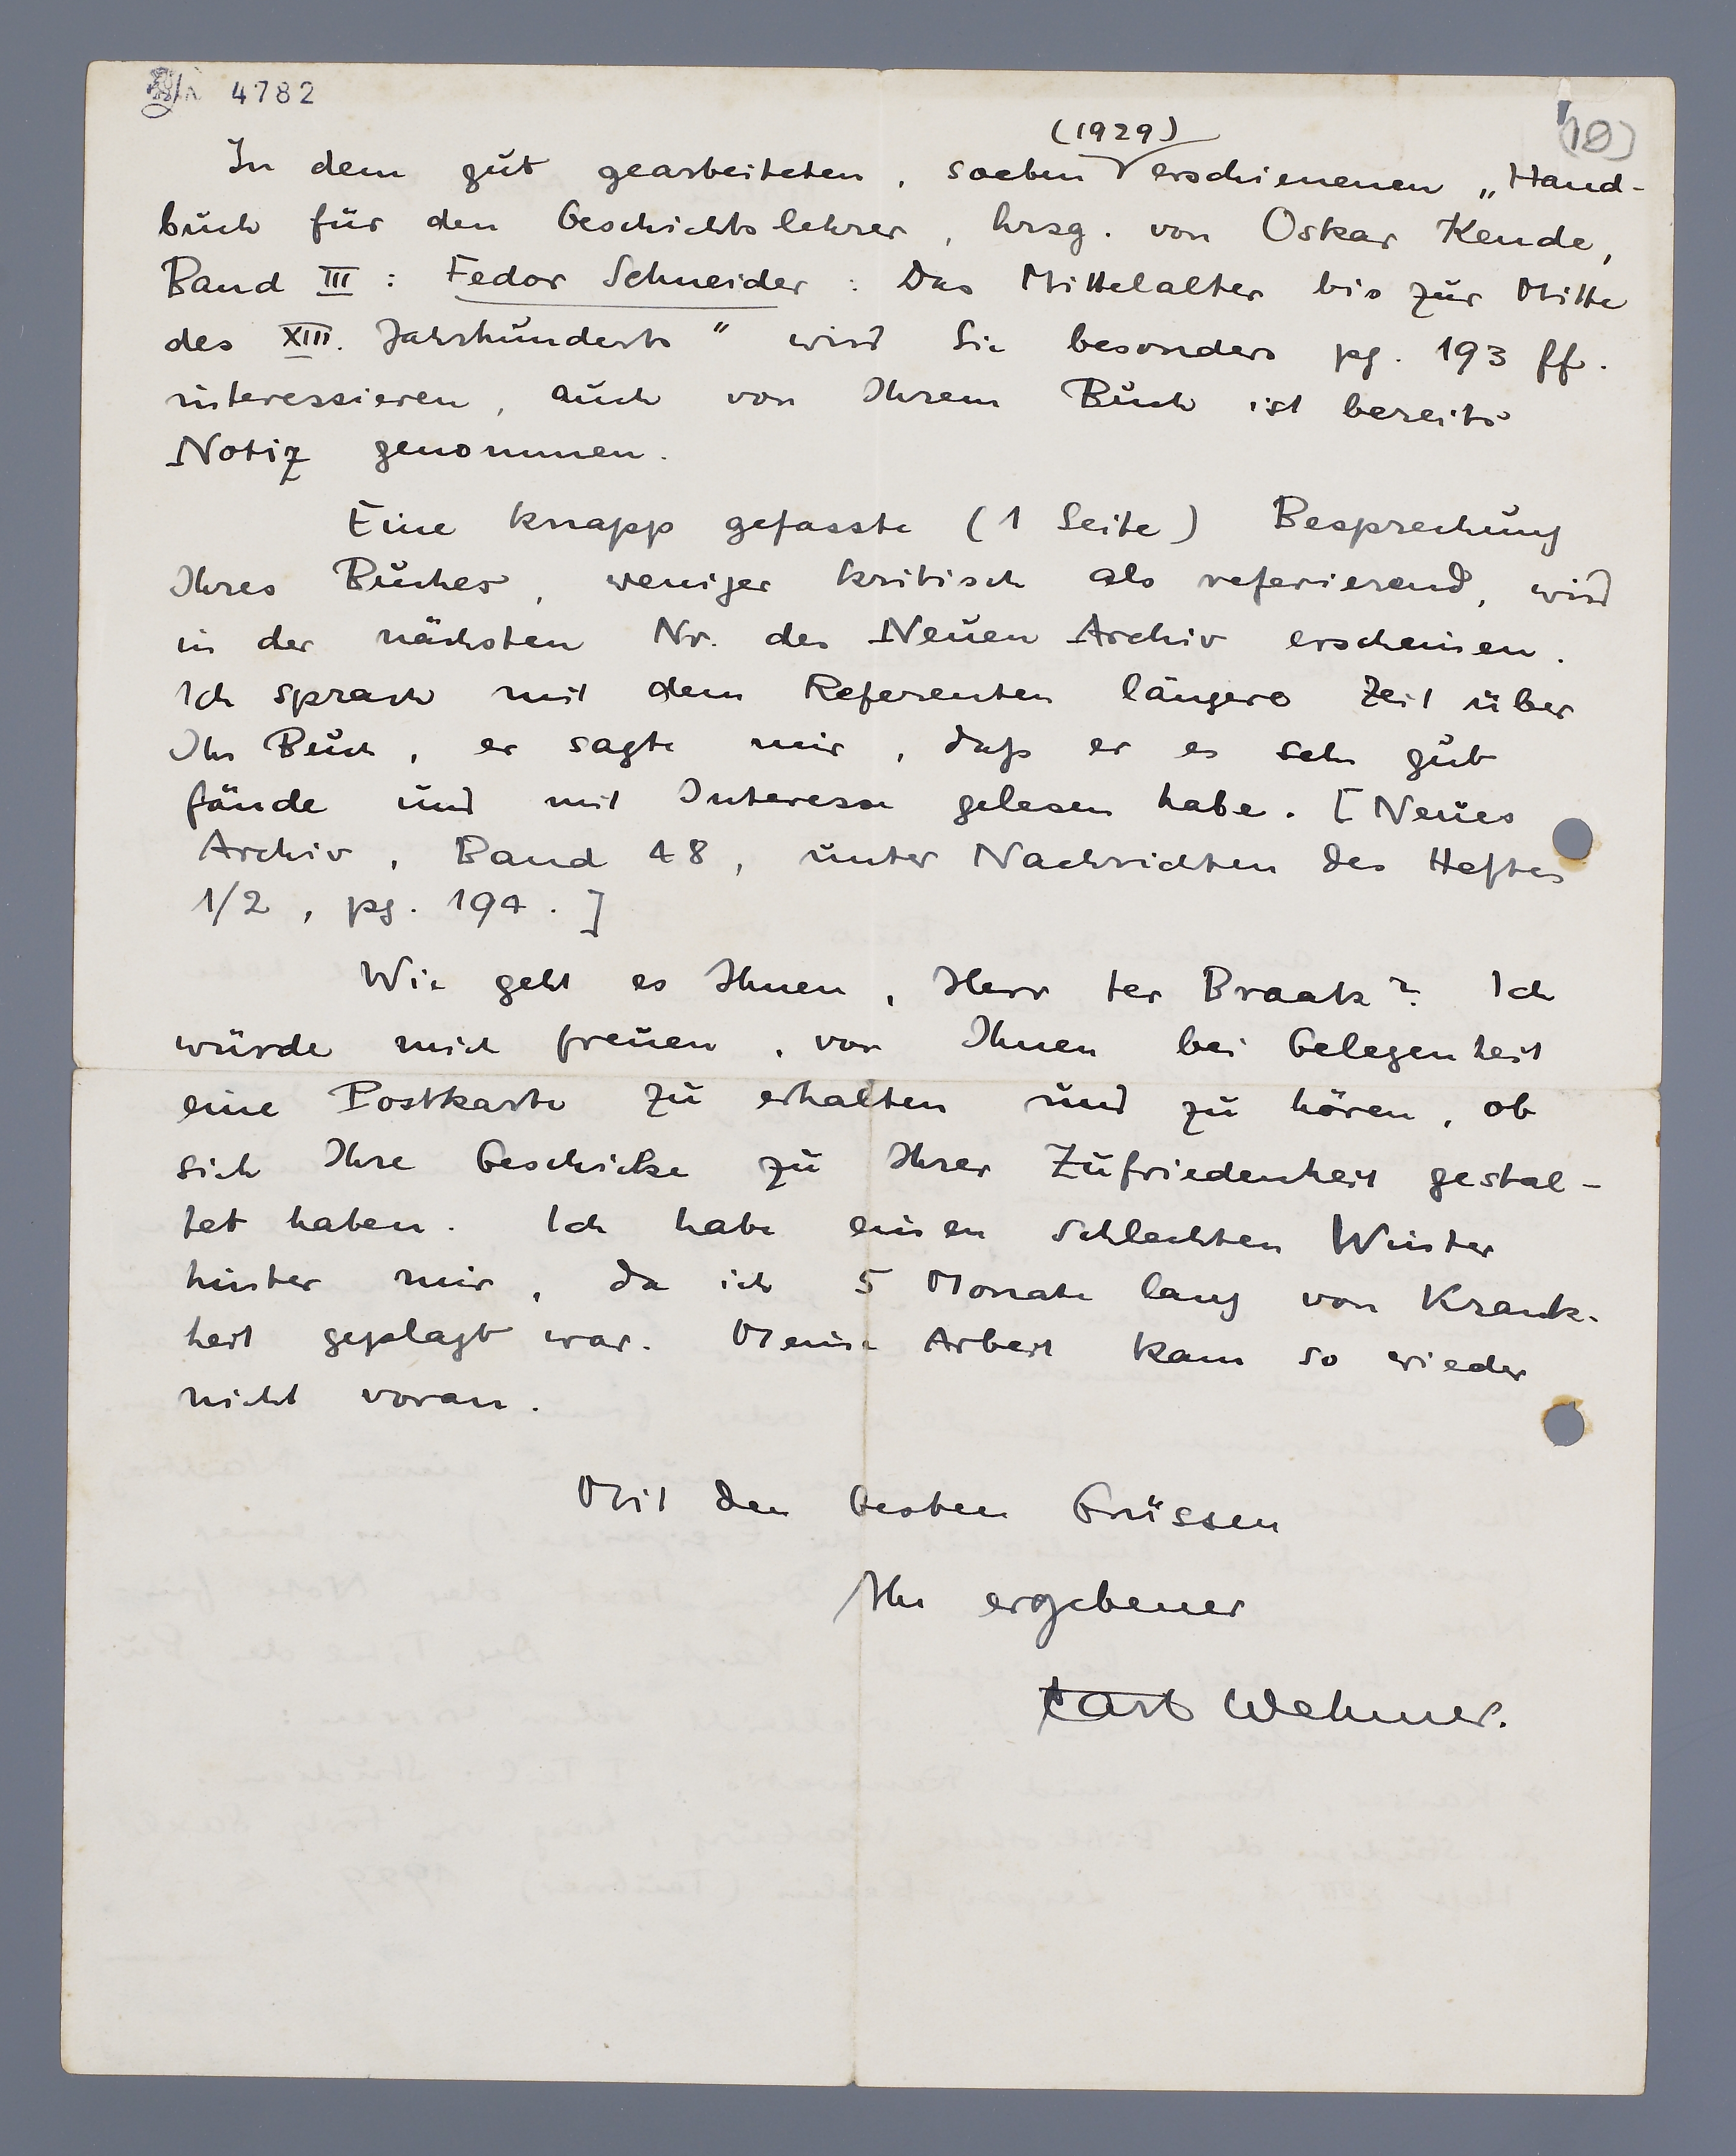 4782
(10)
(1929)
In dem gut gearbeiteten, soeben erschienenen „Hand-
buch für den Geschichtslehrer, hrsg. von Oskar Kende,
Band III : Fedor Schneider : Das Mittelalter bis zur Mitte
des XIII. Jahrhunderts" wird Sie besonders pg. 193 ff.
interessieren, auch von Ihrem Buch ist bereits
Notiz genommen.
Eine knapp gefasste (1 Seite) Besprechung
Ihres Buches, weniger kritisch als referierend, wird
in der nächsten Nr. des Neuen Archiv erscheinen.
Ich sprach mit dem Referenten längere Zeit über
Ihr Buch, er sagte mir, daß er es sehr gut
fände und mit Interesse gelesen habe. [Neues
Archiv, Band 48, unter Nachrichten des Heftes
1/2, pg. 194.]
Wie geht es Ihnen, Herr ter Braak? Ich
würde mich freuen, von Ihnen bei Gelegenheit
eine Postkarte zu erhalten und zu hören, ob
sich Ihre Geschicke zu Ihrer Zufriedenheit gestal-
tet haben. Ich habe einen schlechten Winter
hinter mir, da ich 5 Monate lang von Krank-
heit geplagt war. Meine Arbeit kam so wieder
nicht voran.
Mit den besten Grüssen
Ihr ergebener
Carl Wehmer.